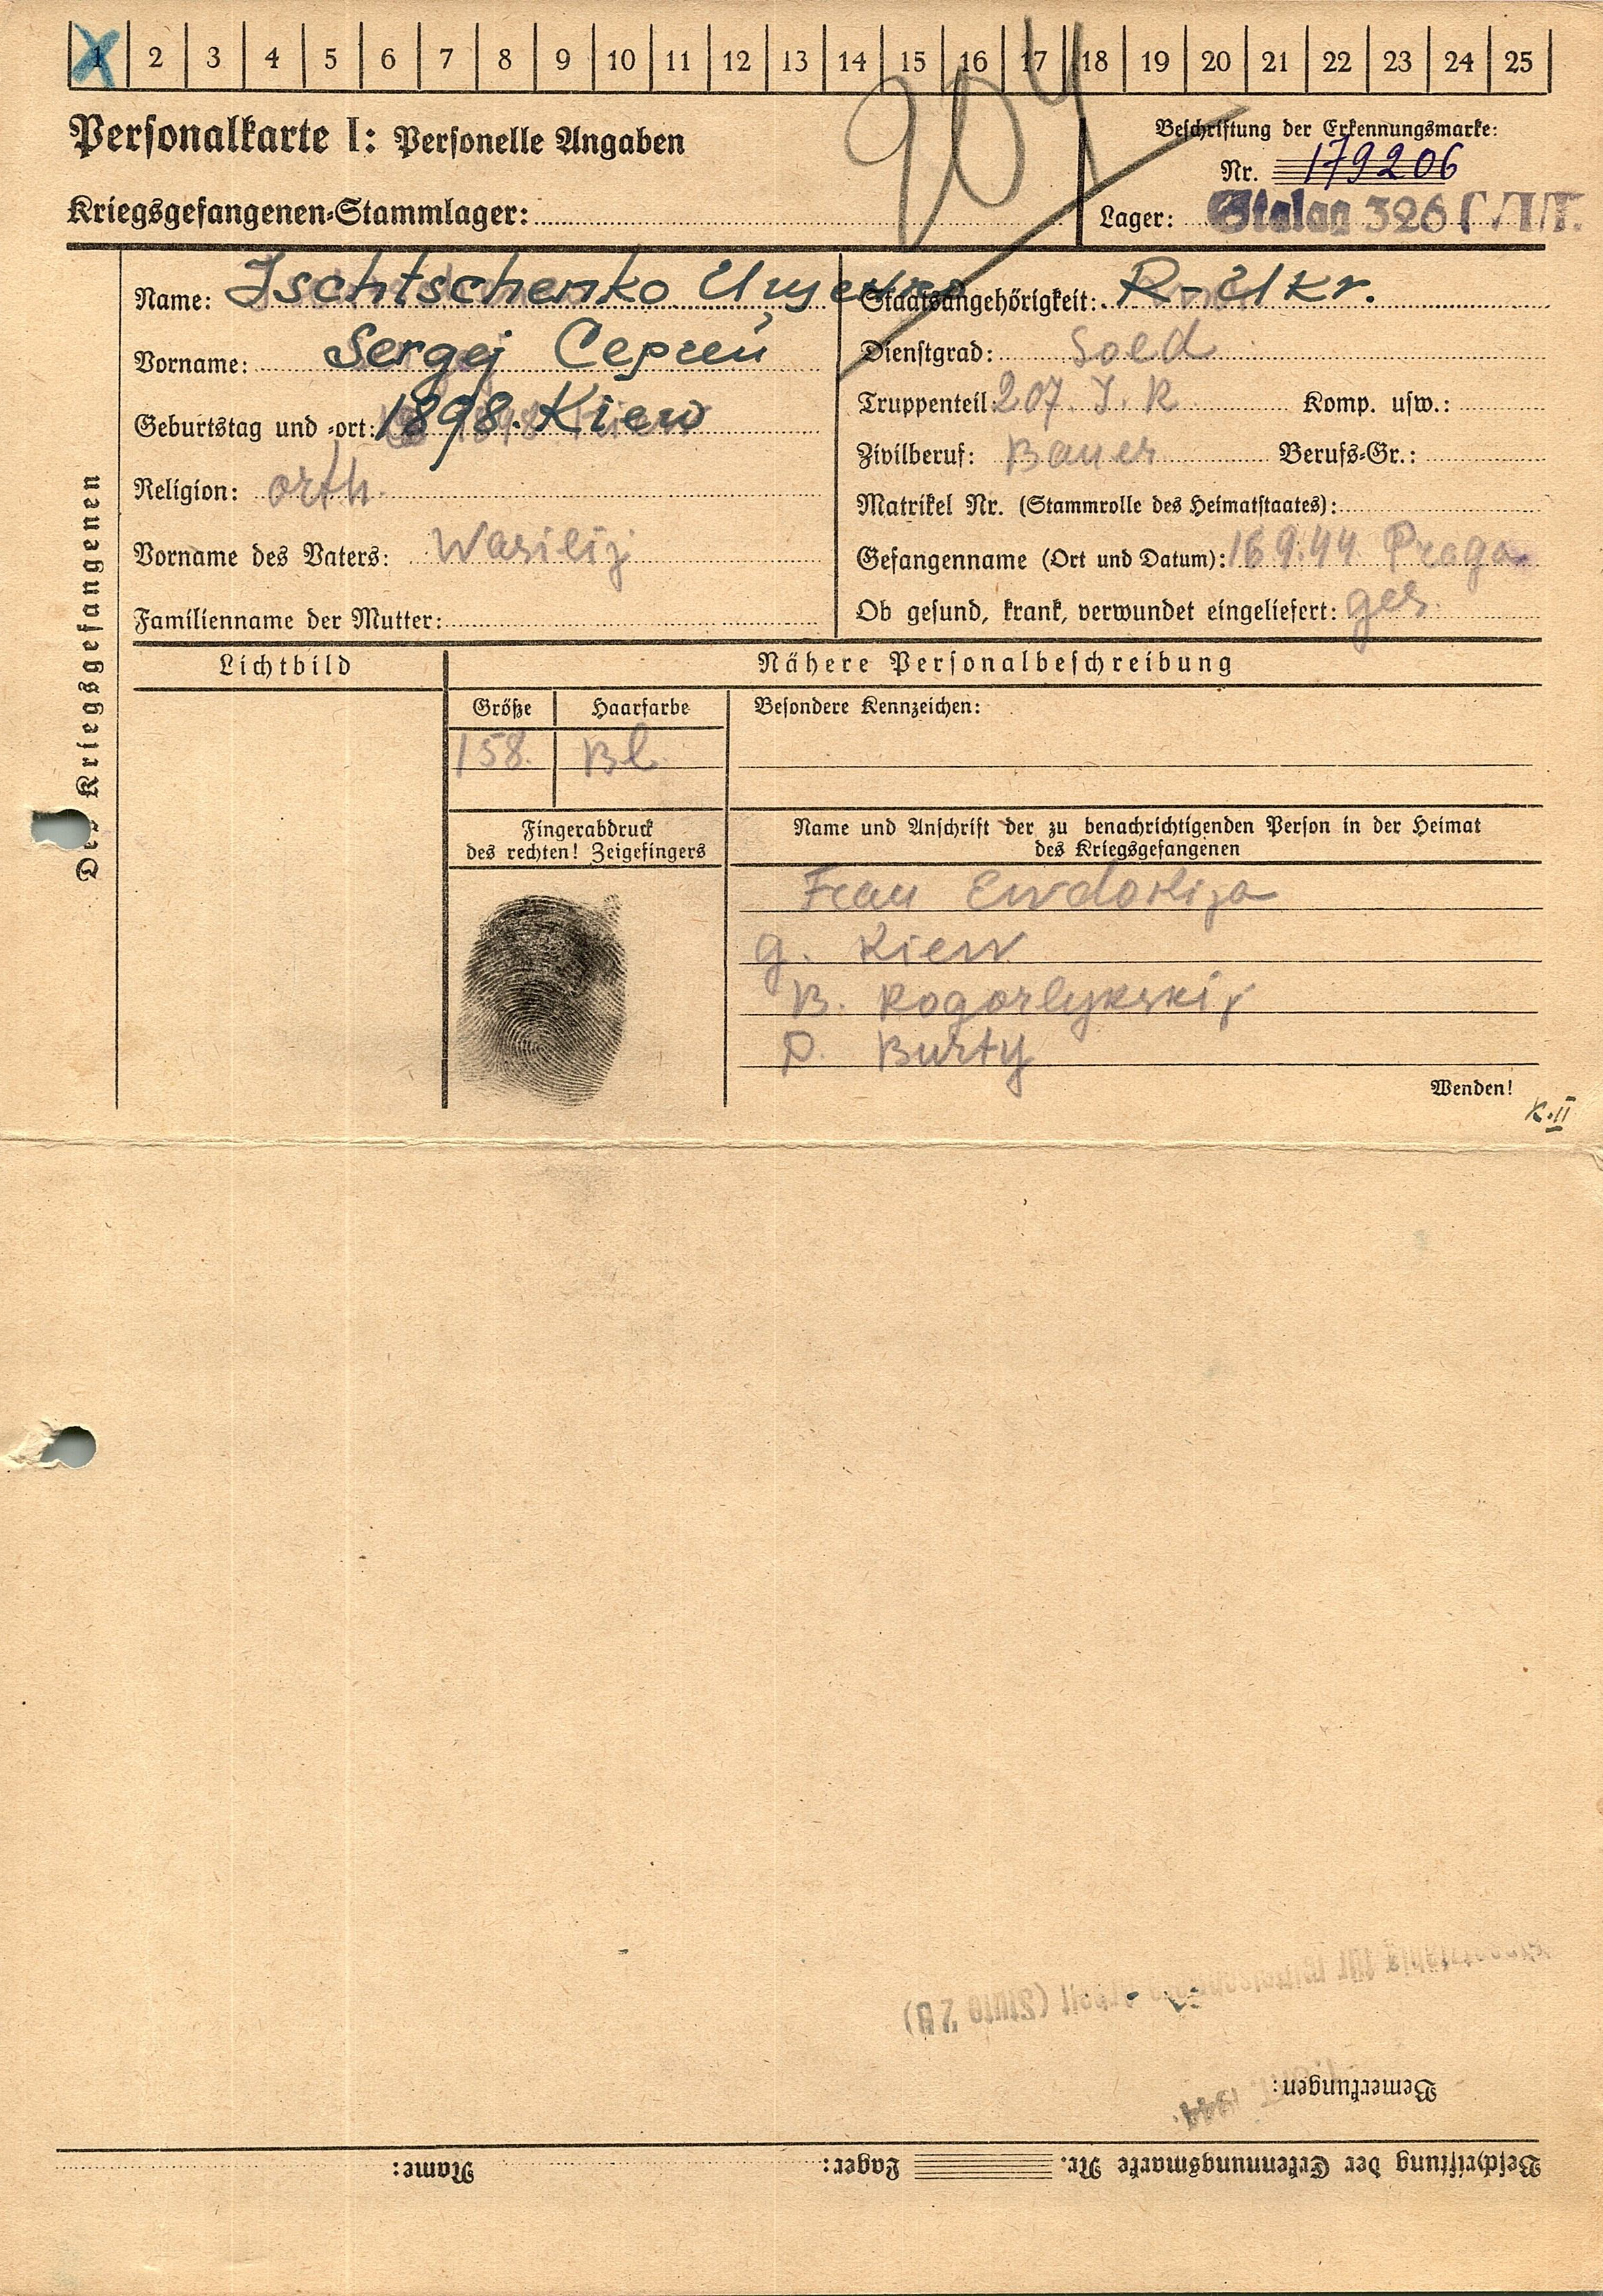 1 2 3 4 5 6 7 8 9 10 11 12 13 14 15 16 17 18 19 20 21 22 23 24 25
904
Personalkarte I: Personelle Angaben
Kriegsgefangenen-Stammlager:
Beschriftung der Erkennungsmarke:
Nr. 179206
Lager: Stalag 326
Des Kriegsgefangenen
Name: Ischtschenko Ищенко
Vorname: Sergej Сергей
Geburtstag und -ort: 1898. Kiew
Religion: orth.
Vorname des Vaters: Wasilij
Familienname der Mutter:
Staatsangehörigkeit: R-Ukr.
Dienstgrad: Sold
Truppenteil: 207. I. R Komp. usw.:
Zivilberuf: Bauer Berufs-Gr.:
Matrikel Nr. (Stammrolle des Heimatstaates):
Gefangennahme (Ort und Datum): 16 9.44. Praga
Ob gesund, krank, verwundet eingeliefert: ges.
Lichtbild
Nähere Personalbeschreibung
Größe Haarfarbe Besondere Kennzeichen:
158. Bl.
Fingerabdruck
des rechten! Zeigefingers
Name und Anschrift der zu benachrichtigenden Person in der Heimat
des Kriegsgefangenen
Frau
g. Kiew
D. Burty
Wenden!
K.II
Beschriftung der Erkennungsmarke Nr. Lager: Name:
Bemerkungen:
1944.